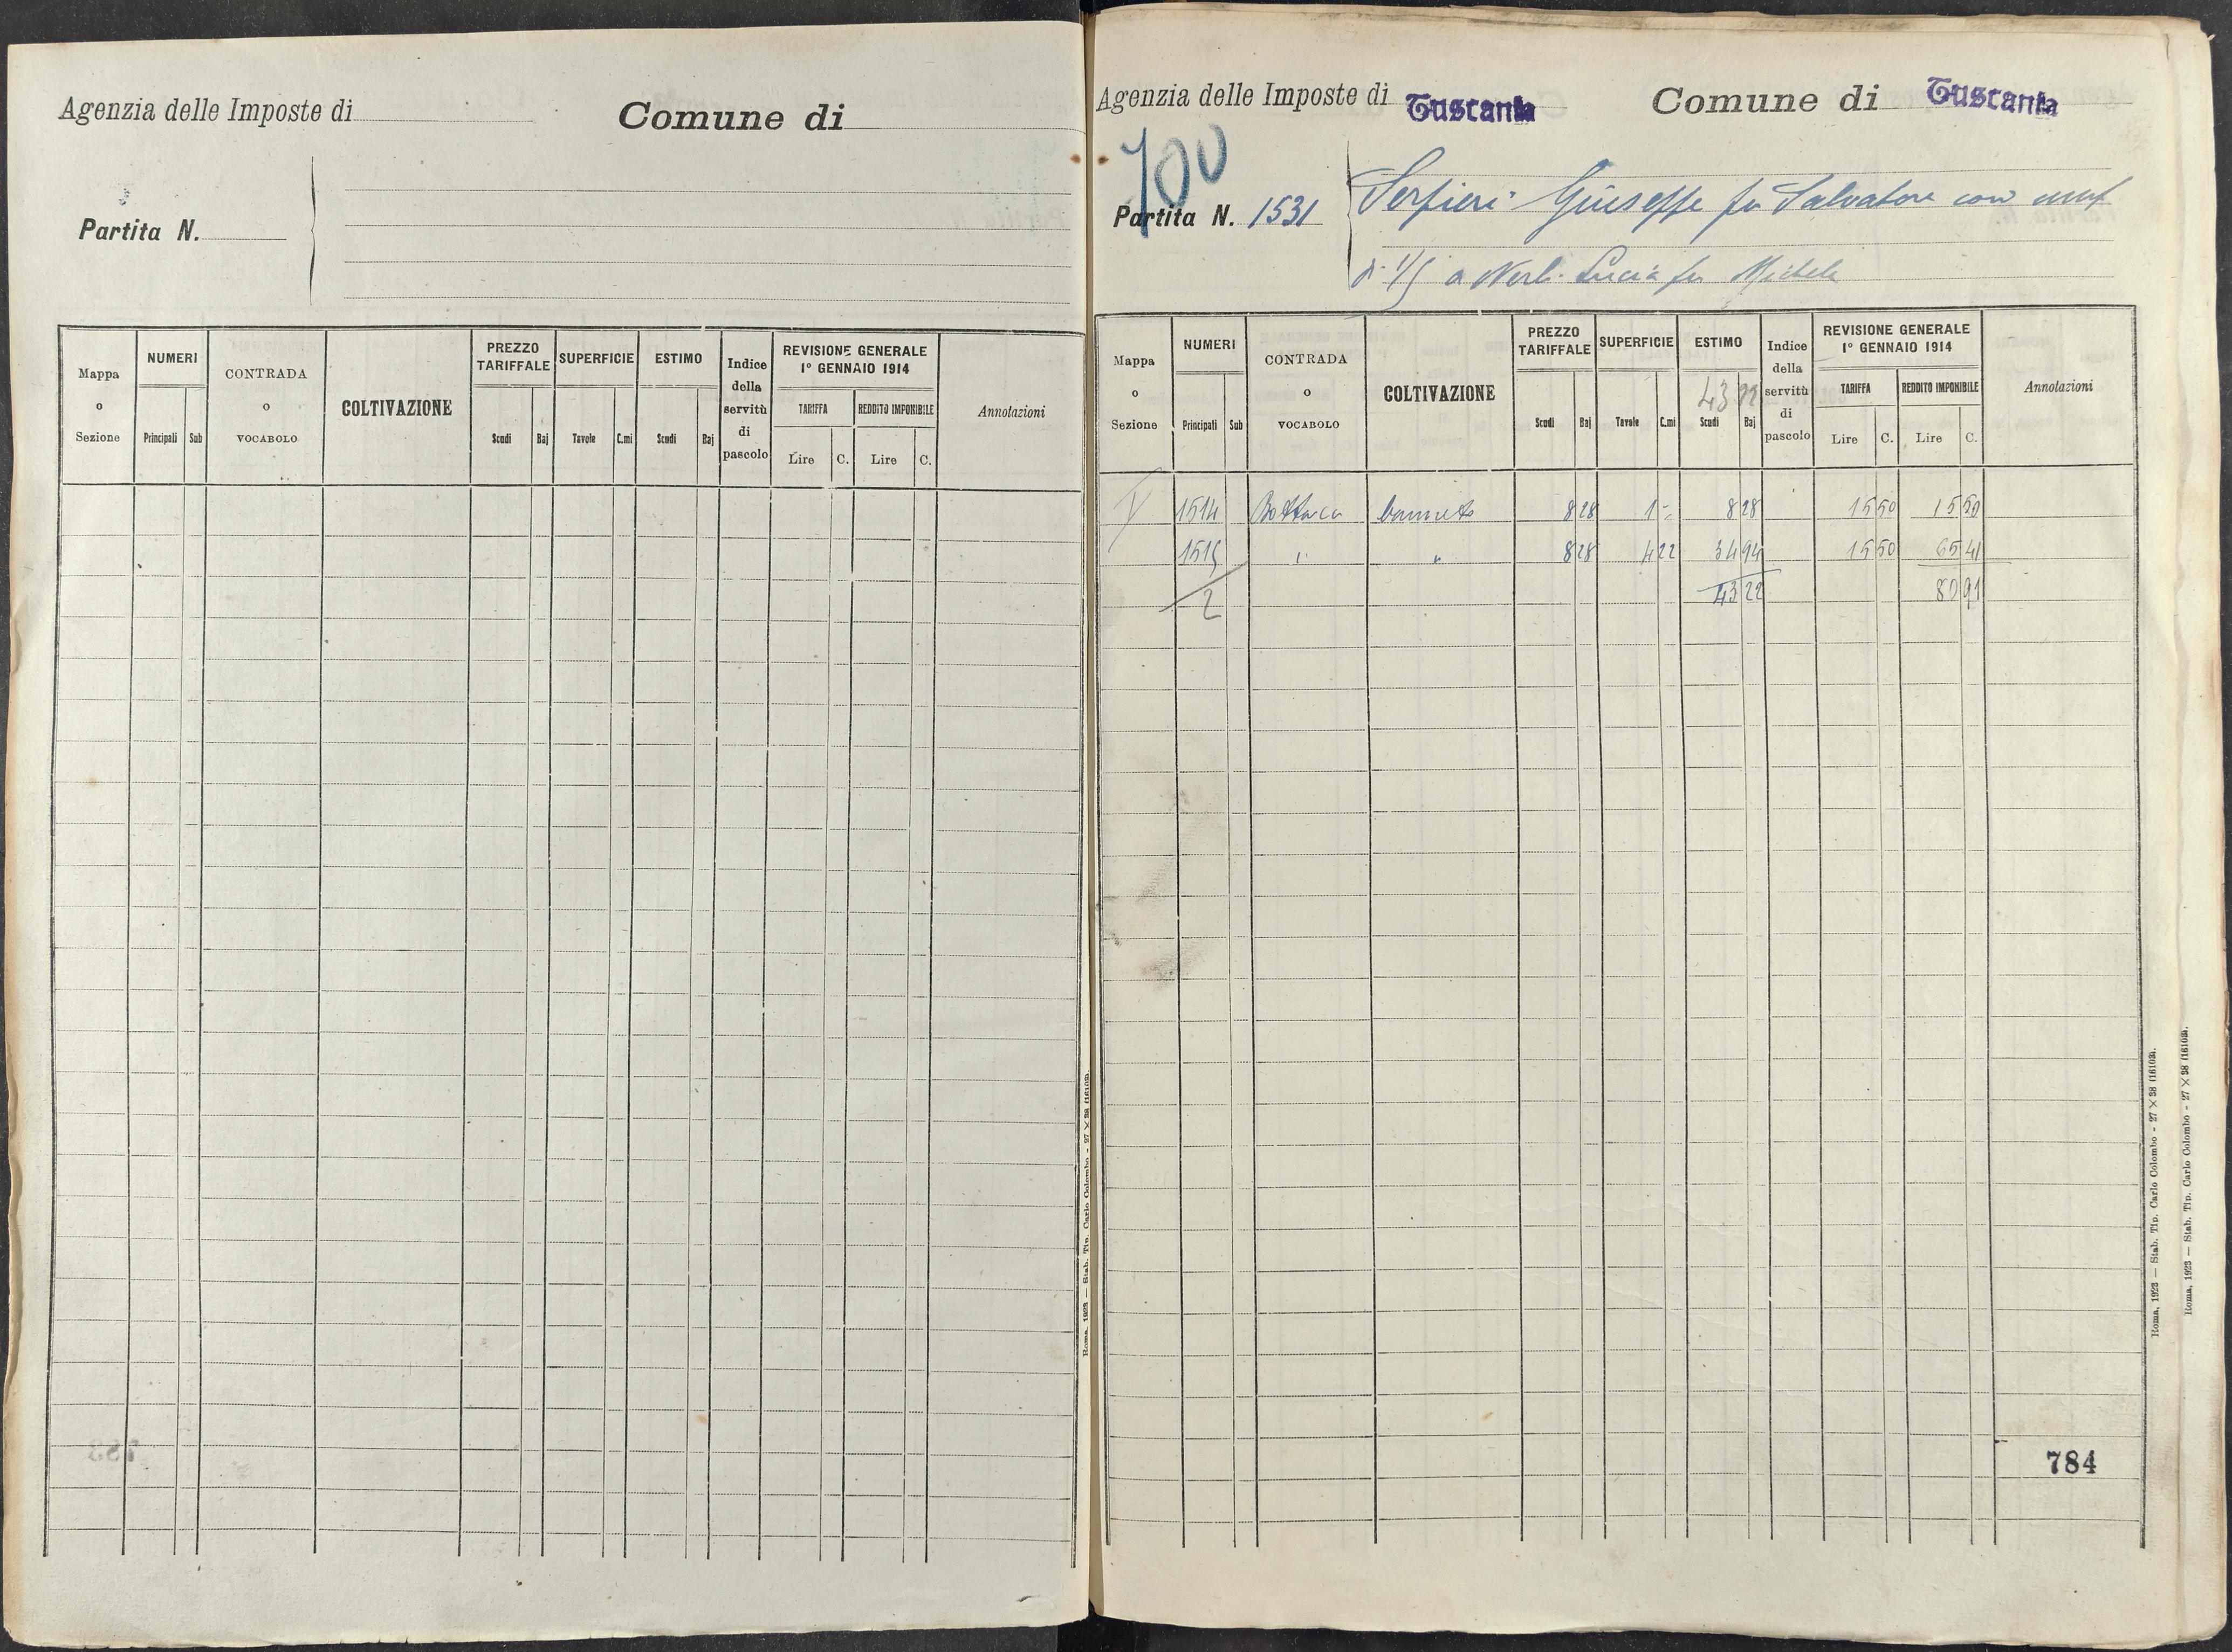 Agenzia delle Imposte di
Comune di
Partita N.
Mappa o Sezione
NUMERI
Principali
Sub
CONTRADA o VOCABOLO
COLTIVAZIONE
PREZZO TARIFFALE
Scudi
Baj
SUPERFICIE
Tavole
C.mi
ESTIMO
Scudi
Baj
Indice della servitù di pascolo
REVISIONE GENERALE
1º GENNAIO 1914
TARIFFA
REDDITO IMPONIBILE
Lire
C.
Lire
C.
Annotazioni
Roma, 1923 — Stab. Tip. Carlo Colombo - 27 × 38 (16103).
Agenzia delle Imposte di Tuscania
Comune di Tuscania
700
Partita N. 1531
Serfieri Giuseppe fu Salvatore con usuf
di 1/5 a Nerli Lucia fu Michele
Mappa o Sezione
NUMERI
Principali
Sub
CONTRADA o VOCABOLO
COLTIVAZIONE
PREZZO TARIFFALE
Scudi
Baj
SUPERFICIE
Tavole
C.mi
ESTIMO
43 22
Scudi
Baj
Indice della servitù di pascolo
REVISIONE GENERALE
1º GENNAIO 1914
TARIFFA
REDDITO IMPONIBILE
Lire
C.
Lire
C.
Annotazioni
V 1514 8 28 1 - 8 28 15 50 15 50
1515 " " 8 28 4 22 34 94 15 50 65 41
2 43 22 80 91
784
Roma, 1923 — Stab. Tip. Carlo Colombo - 27 × 38 (16103).
Roma, 1923 — Stab. Tip. Carlo Colombo - 27 × 38 (16103).